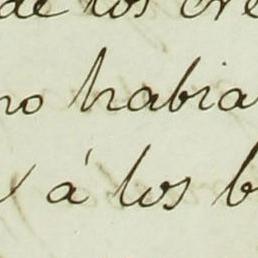 de los
no habia
á los b